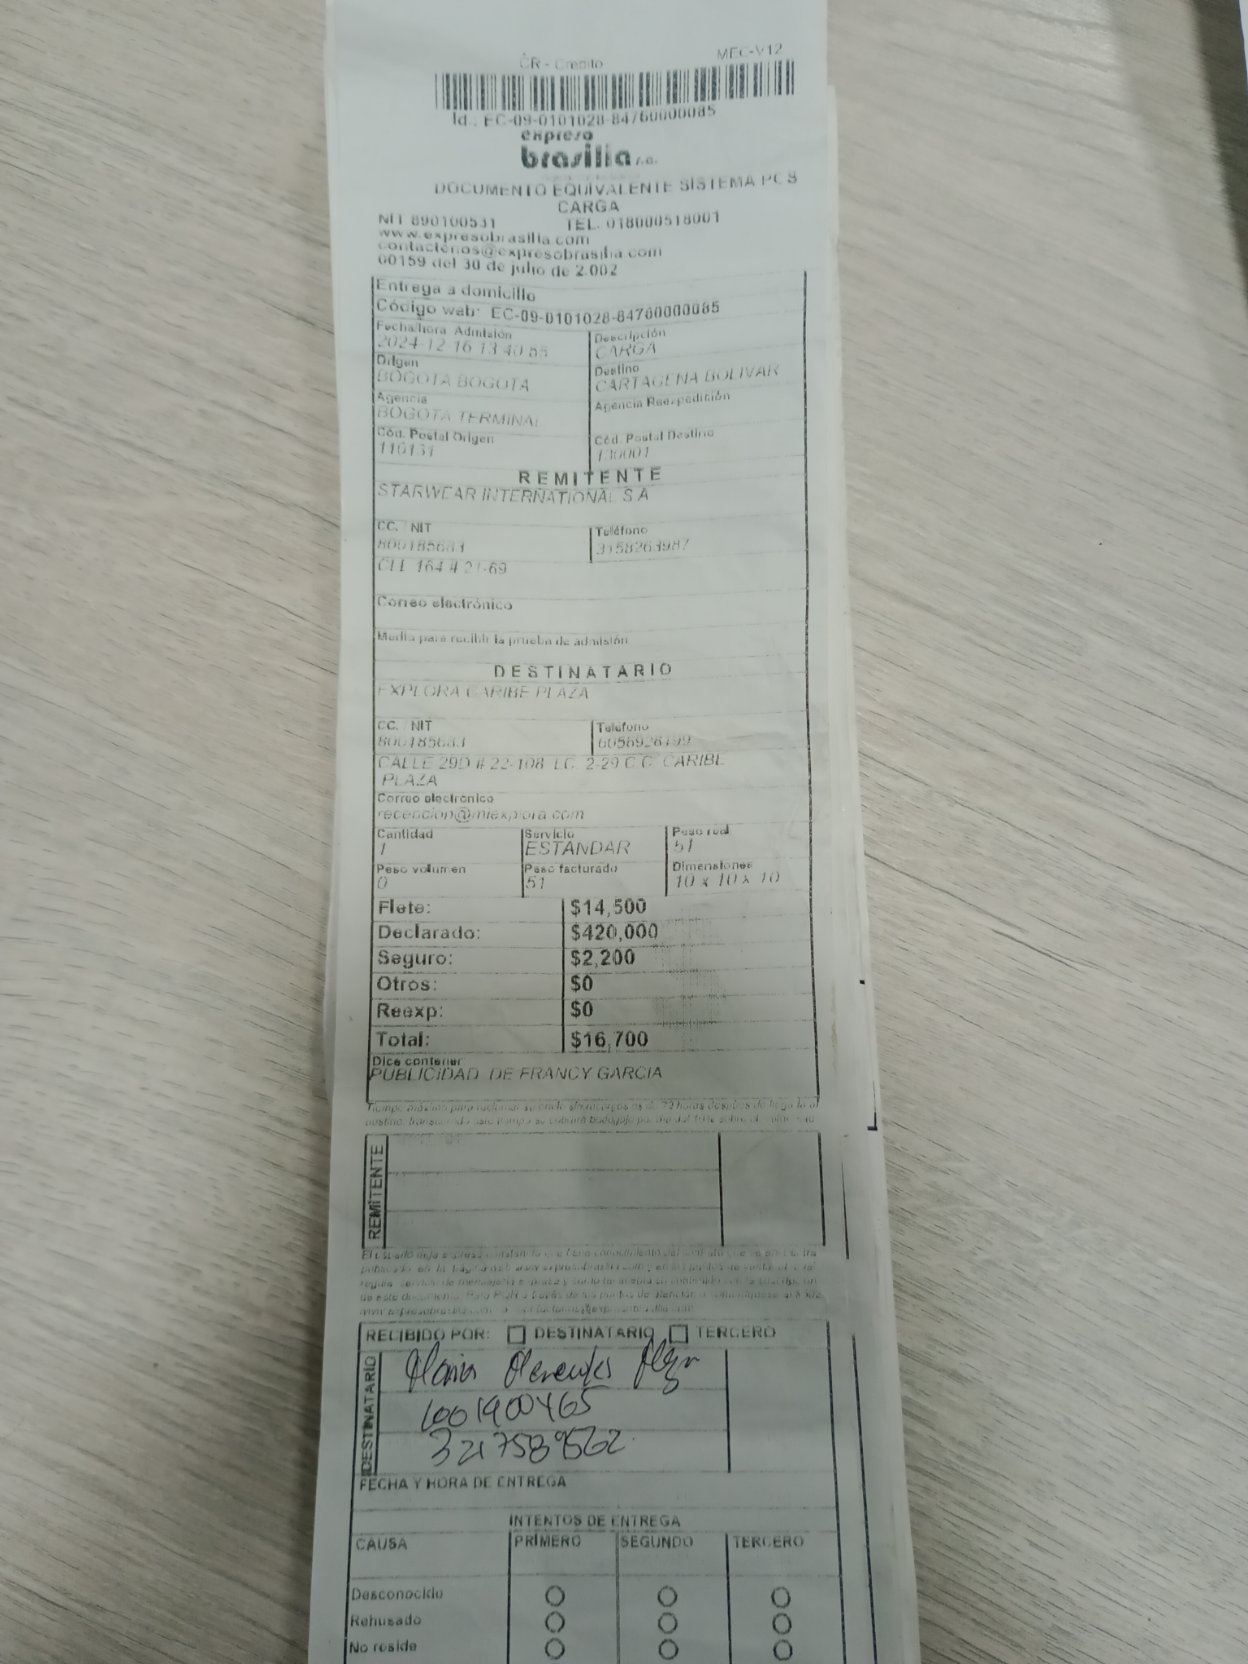 CR - Credito MEC-V12
Id.: EC-09-0101028-84760000085
expreso
brasilia s.a.
DOCUMENTO EQUIVALENTE SISTEMA POS
CARGA
NIT 890100531 TEL. 018000518001
www.expresobrasilia.com
contactenos@expresobrasilia.com
00159 del 30 de julio de 2.002
Entrega a domicilio
Código web: EC-09-0101028-84760000085
Fecha/hora Admisión Descripción
2024-12-16 13:40:55 CARGA
Origen Destino
BOGOTA BOGOTA CARTAGENA BOLIVAR
Agencia Agencia Reexpedición
BOGOTA TERMINAL
Cód. Postal Origen Cód. Postal Destino
110131 130001
REMITENTE
STARWEAR INTERNATIONAL S A
CC. NIT Teléfono
800185683 3158263987
CLL 164 # 21-69
Correo electrónico
Medio para recibir la prueba de admisión
DESTINATARIO
EXPLORA CARIBE PLAZA
CC. NIT Teléfono
800185683 6056926199
CALLE 29D # 22-108 LC. 2-29 C.C. CARIBE
PLAZA
Correo electronico
recepcion@miexplora.com
Cantidad Servicio Peso real
1 ESTANDAR 51
Peso volumen Peso facturado Dimensiones
0 51 10 x 10 x 10
Flete: $14,500
Declarado: $420,000
Seguro: $2,200
Otros: $0
Reexp: $0
Total: $16,700
Dice contener
PUBLICIDAD DE FRANCY GARCIA
REMITENTE
RECIBIDO POR: DESTINATARIO TERCERO
DESTINATARIO
1001900465
3217589562
FECHA Y HORA DE ENTREGA
INTENTOS DE ENTREGA
CAUSA PRIMERO SEGUNDO TERCERO
Desconocido
Rehusado
No reside